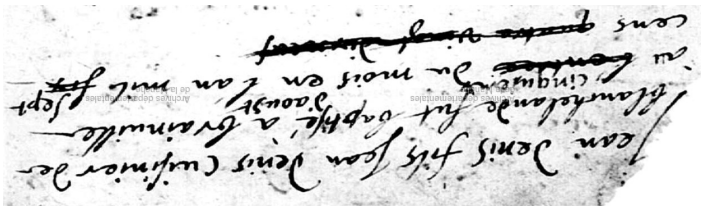 Jean Denis fils Jean Denis Cuisinier de
blanchelande fut baptisé a brainville
au cinquieme du mois d'aoust en l'an mil sept
cens quatre vingt dixneuf
Archives départementales de la
Archives départementales de la